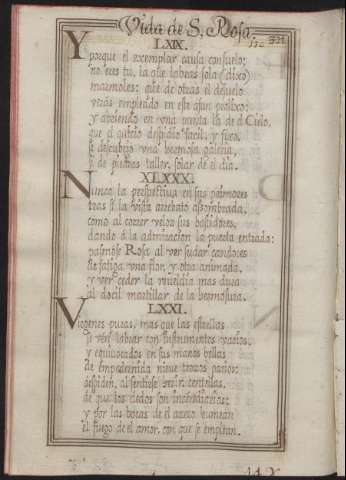 Vida de S. Rosa.
LXIX.
Y porque el exemplar causa consuelo;
no eres tu, la que labras sola (dixo)
marmoles; que de otras el desuelo
veras empleado en este afan prolixo:
y abriendo en una puerta de el Cielo,
que el quicio despidio facil, y fixo,
se descubrio una hermosa galeria,
de piedras taller, solar de el dia.
XLXXX.
Nunca la perspectiva en sus primores
tras si la vista arrebato assombrada,
como al correr veloz sus bastidores,
dando à la admiracion la puerta entrada:
pasmose Rosa al ver sudar candores
se fatiga una flor, y otra animada,
y ver ceder la rebeldia mas dura
al docil martillar de la hermosura.
LXXI.
Virgenes puras, mas que las estrellas
se veen labrar con instrumentos varios,
y equivocados en sus manos bellas
de empedernida nieve trozos parios:
despiden, al sentirse herir, centellas,
de que los dedos son incendiarios;
y por las bocas de el acero humean
el fuego de el amor, con que se emplean.